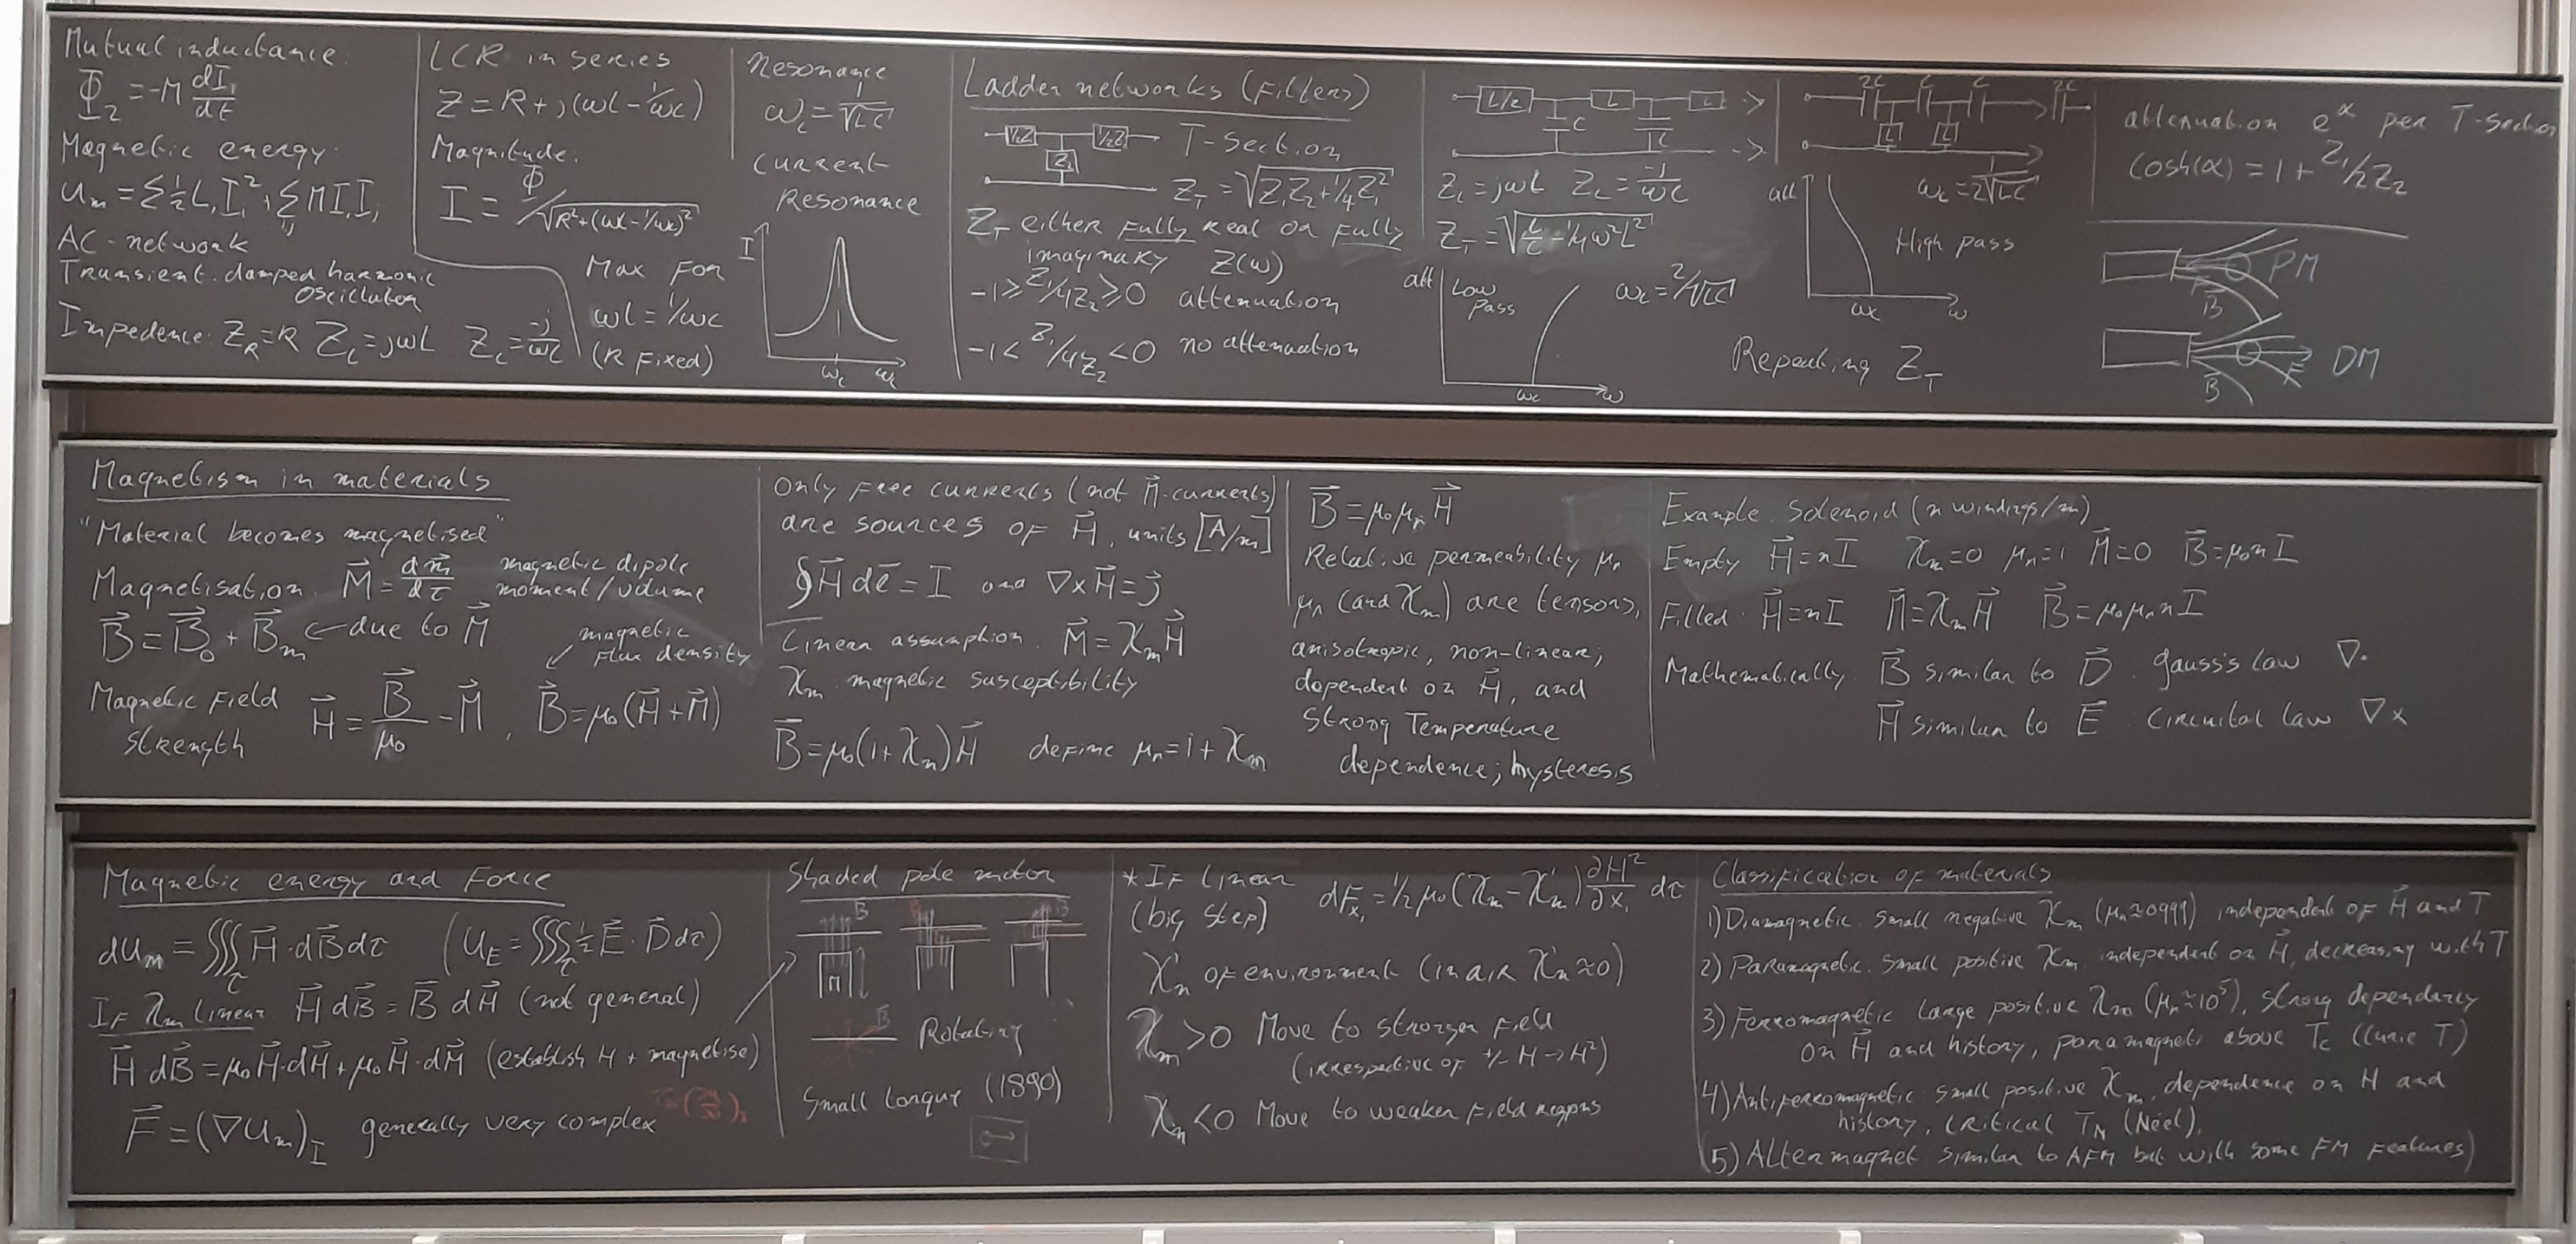 Mutual inductance:
Φ₂ = -M dI₁/dt
Magnetic energy:
U_m = Σ½L_iI_i² + Σ_ij M I_i I_j
AC-network
Transient: damped harmonic
oscillator
Impedence: Z_R=R Z_L=jωL Z_C=-j/ωC
LCR in series
Z = R + j(ωL - 1/ωC)
Magnitude:
I = Φ/√(R²+(ωL-1/ωC)²)
Max for
ωL = 1/ωC
(R fixed)
Resonance
ω_c = 1/√LC
Current
Resonance
I
ω_c ω
Ladder networks (Filters)
½Z₁ ½Z₁ T-section
Z₂
Z_T = √(Z₁Z₂+¼Z₁²)
Z_T either fully real or fully
imaginary Z(ω)
-1 ≥ Z₁/4Z₂ ≥ 0 attenuation
-1 < Z₁/4Z₂ < 0 no attenuation
L/2 L L
C C
Z_L=jωL Z_C=-j/ωC
Z_T = √(L/C - ¼ω²L²)
att Low
pass
ω_c = 2/√LC
ω_c ω
2C C C 2C
L L
att
ω_c = 1/2√LC
High pass
ω_c ω
Repeating Z_T
attenuation e^α per T-section
cosh(α) = 1 + Z₁/2Z₂
PM
F
B⃗
DM
F
B⃗
Magnetism in materials
"Material becomes magnetised"
Magnetisation: M⃗ = dm⃗/dτ magnetic dipole
moment/volume
B⃗ = B⃗₀ + B⃗_m ← due to M⃗
magnetic
flux density
Magnetic field
strength
H⃗ = B⃗/μ₀ - M⃗, B⃗ = μ₀(H⃗+M⃗)
Only free currents (not M⃗-currents)
are sources of H⃗, units [A/m]
∮H⃗ dℓ⃗ = I and ∇×H⃗ = j⃗
Linear assumption: M⃗ = χ_m H⃗
χ_m magnetic susceptibility
B⃗ = μ₀(1+χ_m)H⃗ define μ_r = 1 + χ_m
B⃗ = μ₀μ_r H⃗
Relative permeability μ_r
μ_r (and χ_m) are tensors,
anisotropic, non-linear;
dependent on H⃗, and
strong Temperature
dependence; hysteresis
Example: Solenoid (n windings/m)
Empty H⃗=nI χ_m=0 μ_r=1 M⃗=0 B⃗=μ₀nI
Filled: H⃗=nI M⃗=χ_m H⃗ B⃗=μ₀μ_r nI
Mathematically: B⃗ similar to D⃗: gauss's law ∇·
H⃗ similar to E⃗: Circuital law ∇×
Magnetic energy and Force
dU_m = ∭_τ H⃗·dB⃗dτ (U_E = ∭_τ ½E⃗·D⃗dτ)
If χ_m linear: H⃗ dB⃗ = B⃗ dH⃗ (not general)
H⃗ dB⃗ = μ₀H⃗·dH⃗ + μ₀H⃗·dM⃗ (establish H + magnetise)
F⃗ = (∇U_m)_I generally very complex
Shaded pole motor
B B B
B⃗
Rotating
Small torque (1890)
*If linear
(big step)
dF_x₁ = ½μ₀(χ_m - χ'_m) ∂H²/∂x₁ dτ
χ'_m of environment (in air χ'_m ≈ 0)
χ_m > 0 Move to stronger field
(irrespective of +/- H → H²)
χ_m < 0 Move to weaker field regions
Classification of materials
1) Diamagnetic: small negative χ_m (μ_r ≈ 0.999) independent of H⃗ and T
2) Paramagnetic: small positive χ_m independent on H⃗, decreasing with T
3) Ferromagnetic large positive χ_m (μ_r ≈ 10⁵), strong dependancy
on H⃗ and history, paramagnetic above T_C (Curie T)
4) Antiferromagnetic: small positive χ_m, dependence on H and
history, critical T_N (Néel),
(5) Altermagnet similar to AFM but with some FM features)